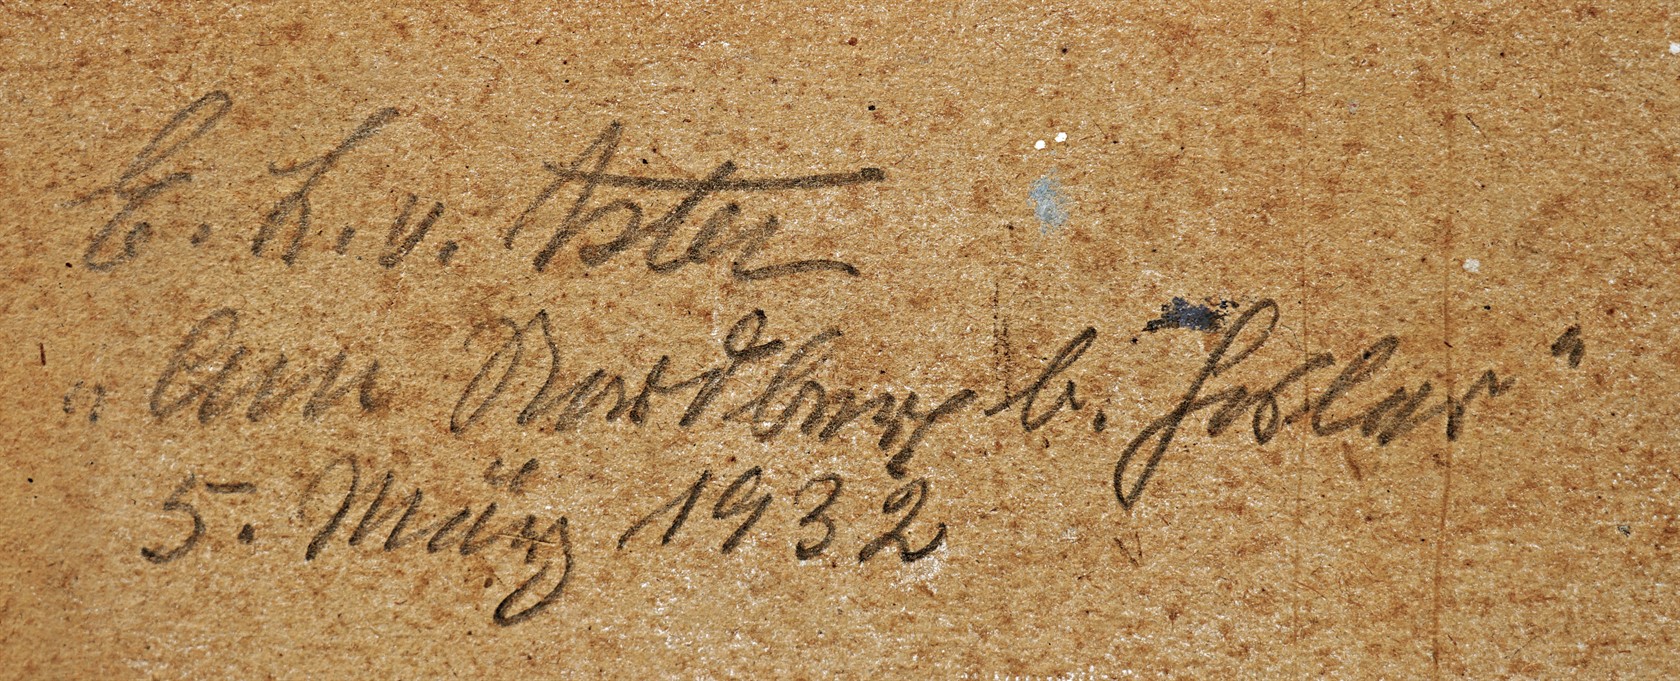 E. L. v. Aster
„ Nordberg b. Goslar“
5. März 1932